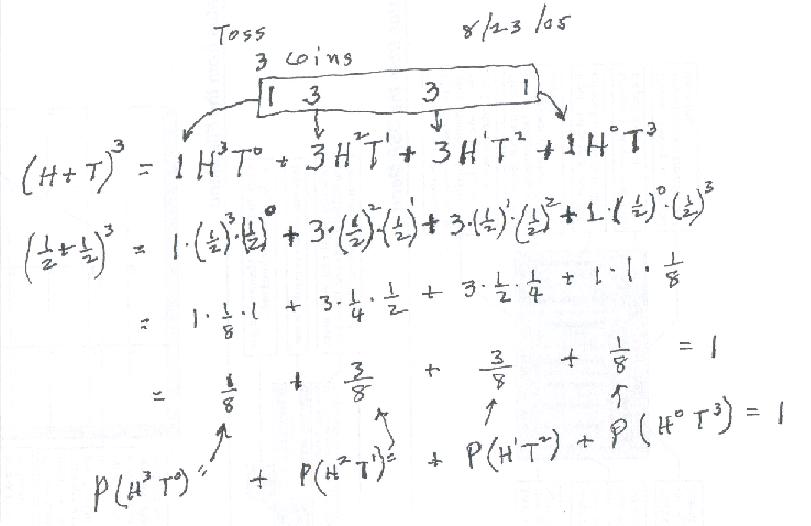 Toss 8/23/05
3 coins
1 3 3 1
(H+T)³ = 1H³T⁰ + 3H²T¹ + 3H¹T² + 1H⁰T³
(1/2+1/2)³ = 1·(1/2)³·(1/2)⁰ + 3·(1/2)²·(1/2)¹ + 3·(1/2)¹·(1/2)² + 1·(1/2)⁰·(1/2)³
= 1·1/8·1 + 3·1/4·1/2 + 3·1/2·1/4 + 1·1·1/8
= 1/8 + 3/8 + 3/8 + 1/8 = 1
P(H³T⁰) + P(H²T¹) + P(H¹T²) + P(H⁰T³) = 1